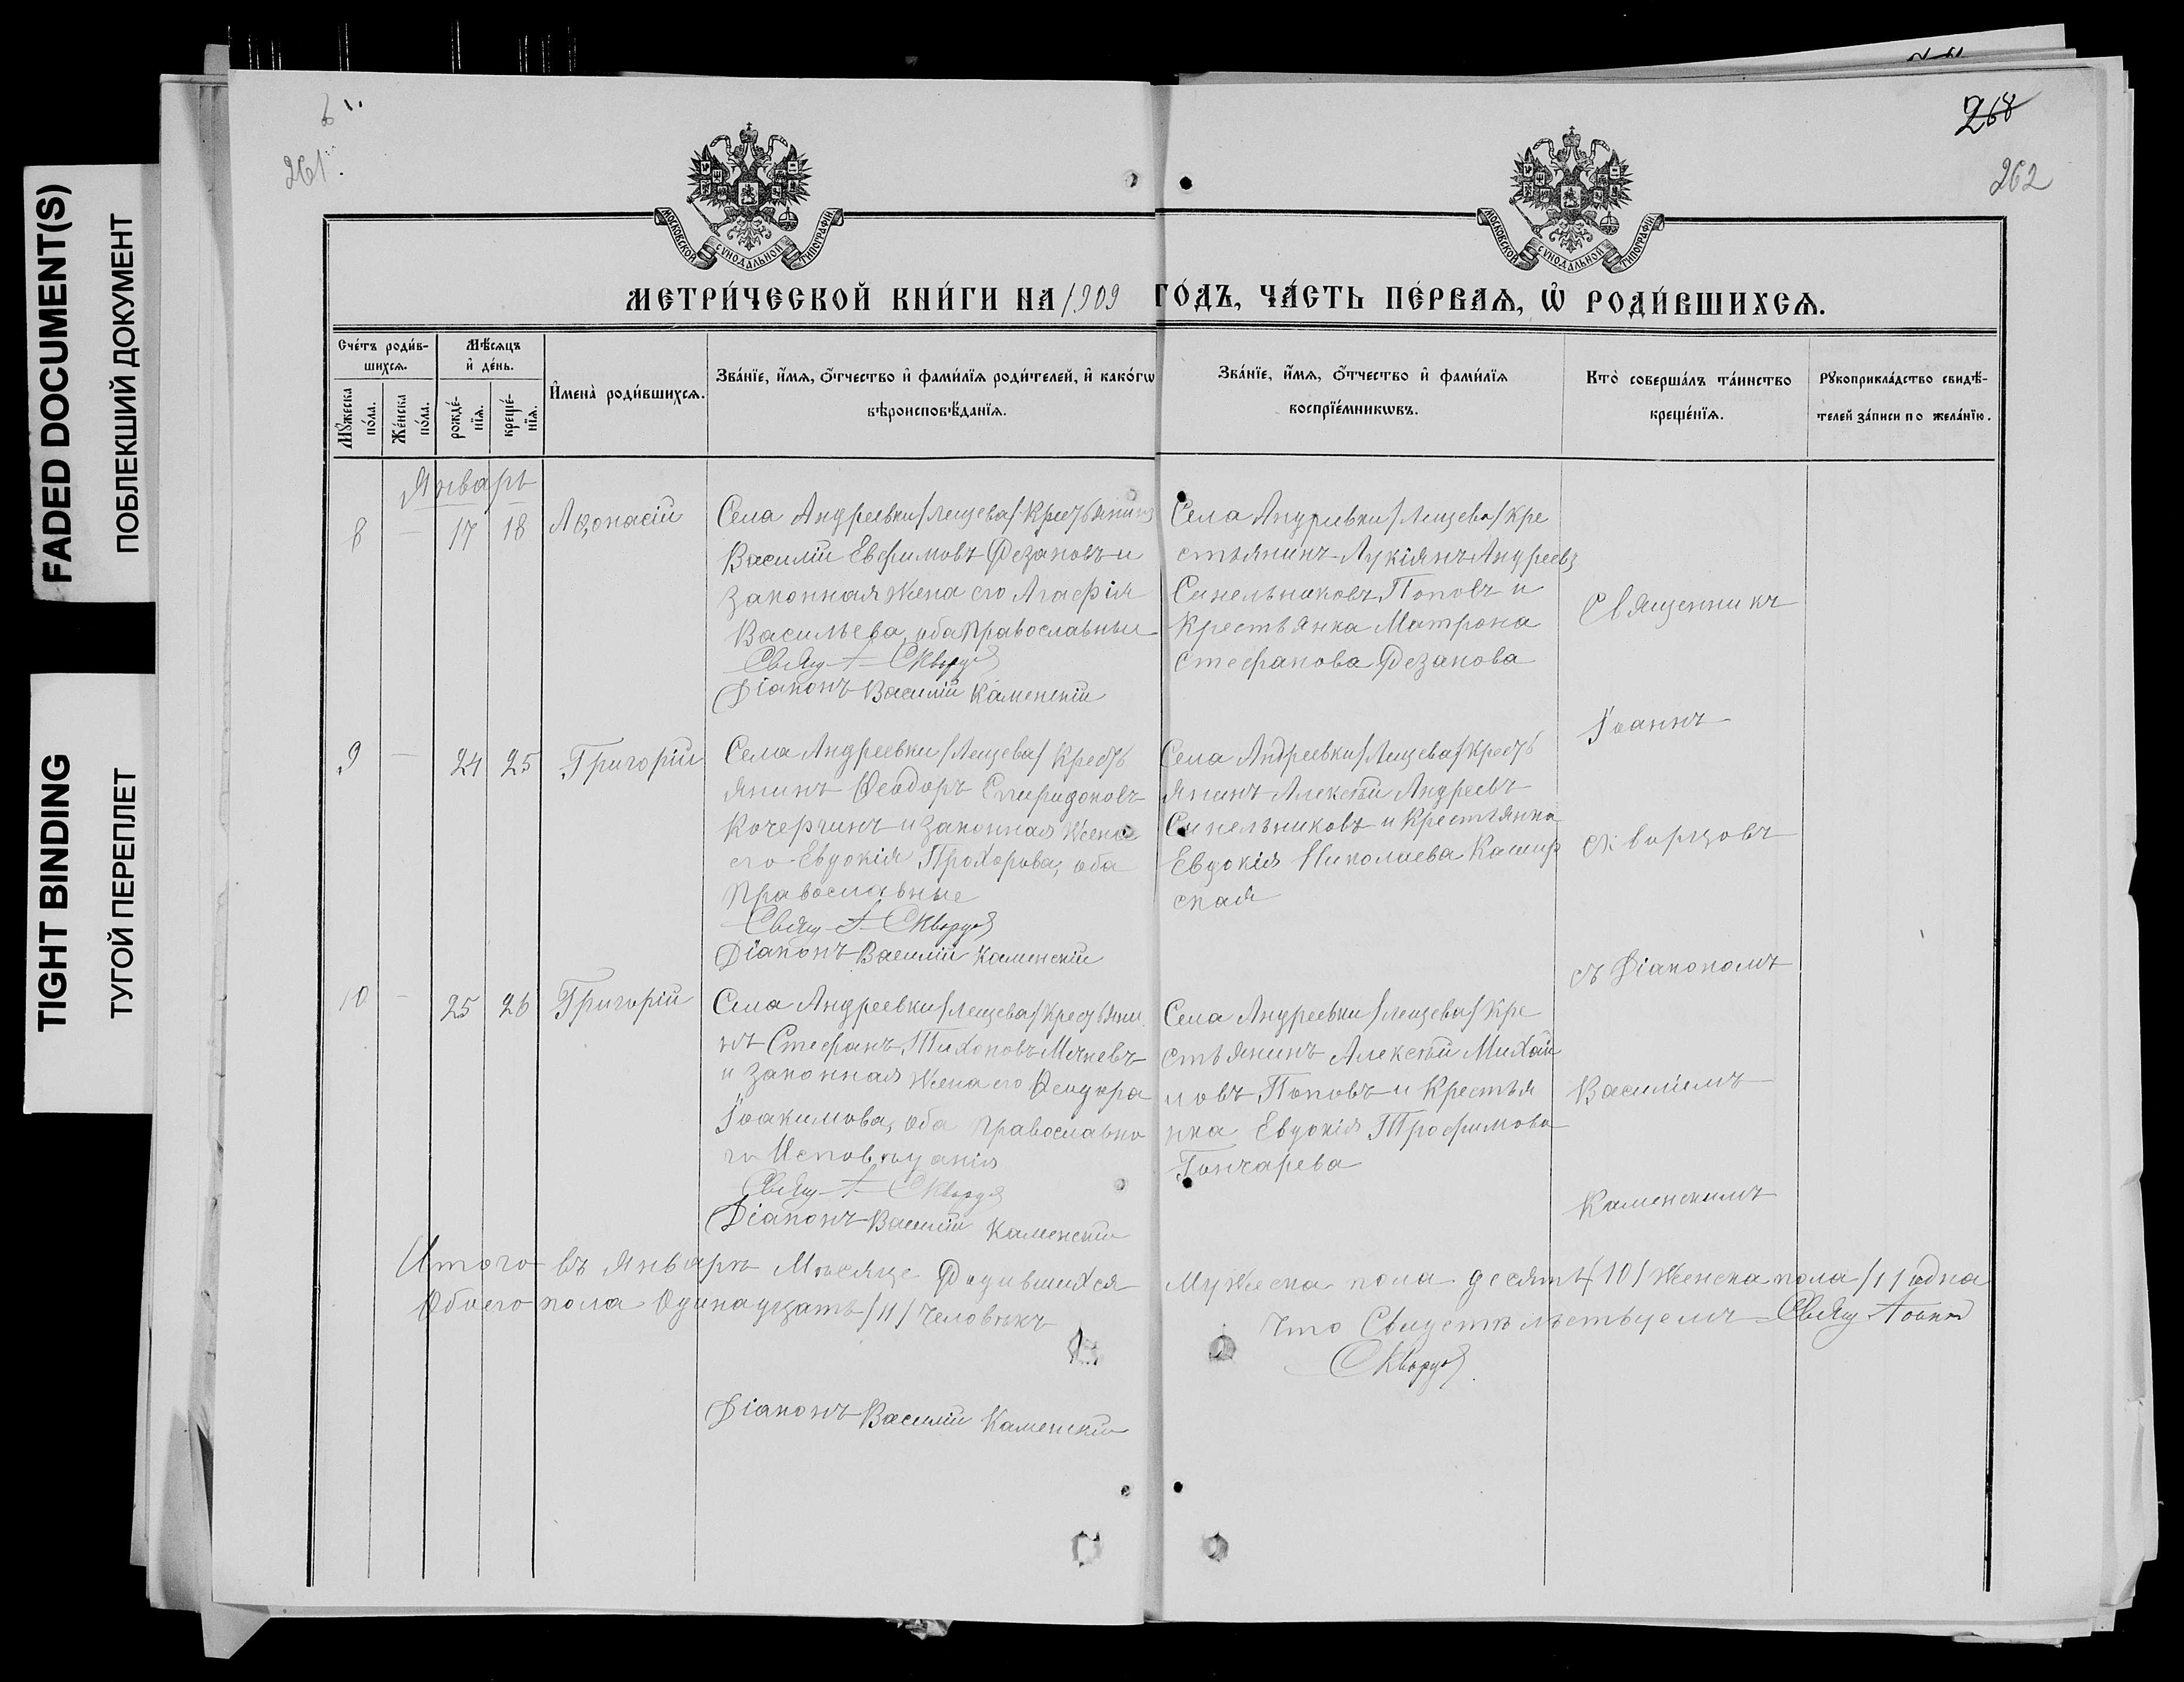 FADED DOCUMENT(S)
ПОБЛЕКШИЙ ДОКУМЕНТ
TIGHT BINDING
ТУГОЙ ПЕРЕПЛЕТ
261.
268
262
МОСКОВСКОЙ СѴНОДАЛЬНОЙ ТИПОГРАФІИ
МОСКОВСКОЙ СѴНОДАЛЬНОЙ ТИПОГРАФІИ
МЕТРИ́ЧЕСКОЙ КНИ́ГИ НА 1909 ГО́ДЪ, ЧА́СТЬ ПЕ́РВАѦ, Ѡ҆ РОДИ́ВШИХСѦ.
Сче́тъ роди́в-
шихсѧ.
Мꙋ́жеска
по́ла.
Же́нска
по́ла.
Мѣ́сѧцъ
и҆ де́нь.
рожде́-
нїѧ.
креще́-
нїѧ.
И҆мена̀ роди́вшихсѧ.
Зва́нїе, и҆́мѧ, ѻ҆́тчество и҆ фами́лїѧ роди́телей, и҆ како́гѡ
вѣроисповѣ́данїѧ.
Зва́нїе, и҆́мѧ, ѻ҆́тчество и҆ фами́лїѧ
воспрїе́мникѡвъ.
Кто̀ соверша́лъ та́инство
креще́нїѧ.
Рꙋкоприкла́дство свидѣ́-
телей за́писи по жела́нїю.
Январь
8 — 17 18 Аѳонасій
Села Андреевки /Лещева/ Крестьянинъ
Василій Евфимовъ Фезановъ и
законная жена его Агафія
Васильева, оба православные
Свящ. І. Скворцовъ
Діаконъ Василій Каменскій
Села Андреевки /Лещева/ кре
стьянинъ Лукіянъ Андреевъ
Синельниковъ Поповъ и
крестьянка Матрона
Стефанова Фезанова
9 — 24 25 Григорій
Села Андреевки /Лещева/ крестъ
янинъ Ѳеодоръ Спиридоновъ
Кочергинъ и законная жена
его Евдокія Прохорова, оба
православные
Свящ. І. Скворцовъ
Діаконъ Василій Каменскій
Села Андреевки /Лещева/ крестъ
янинъ Алексѣй Андреевъ
Синельниковъ и крестьянка
Евдокія Николаева Кашир
ская
10 — 25 26 Григорій
Села Андреевки /Лещева/ крестьяни
нъ Стефанъ Тихоновъ Мячевъ
и законная жена его Ѳеодора
Іоакимова, оба православно
го исповѣданія
Свящ. І. Скворцовъ
Діаконъ Василій Каменскій
Села Андреевки /Лещева/ кре
стьянинъ Алексѣй Михай
ловъ Поповъ и крестья
нка Евдокія Трофимова
Гончарева
Священникъ
Іоаннъ
Скворцовъ
съ Діакономъ
Василіемъ
Каменскимъ
Итого въ Январѣ Мѣсяце Родившихся мужеска пола десять /10/ женска пола /1/ одна
Обоего пола Одинадцать /11/ Человѣкъ
Что Свидетельствуемъ Свящ. Іоаннъ
Скворцовъ
Діаконъ Василій Каменскій